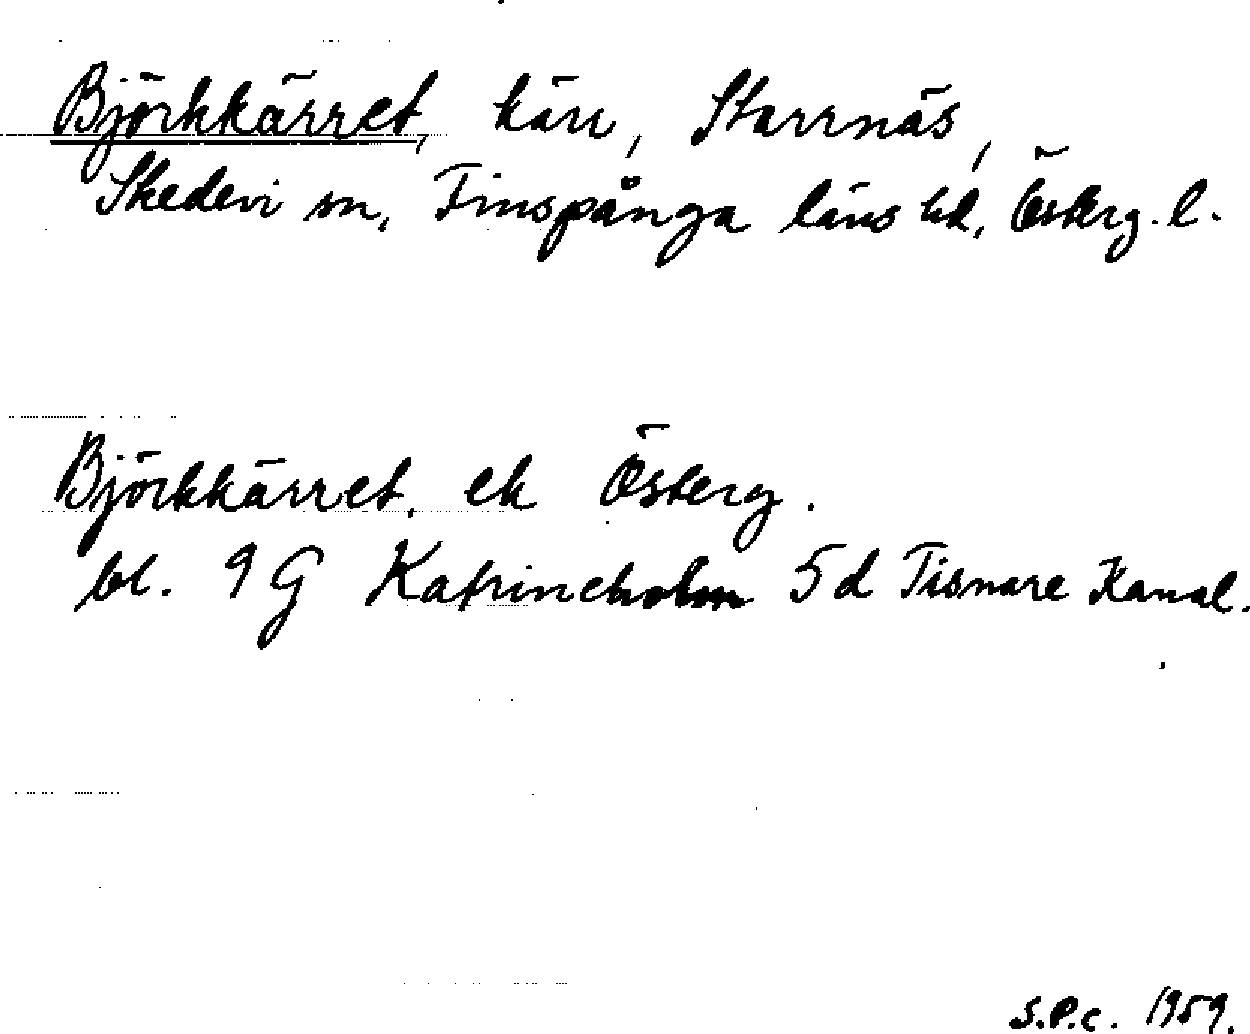 Björkkärret, kärr, Starrnäs,
Skedevi sn, Finspånga läns hd, Österg. l.
Björkkärret, ek Österg.
bl. 9G Katrineholm 5d Tisnare Kanal.
S.P.c. 1959.